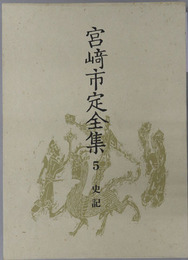 宮﨑市定全集
5
史記